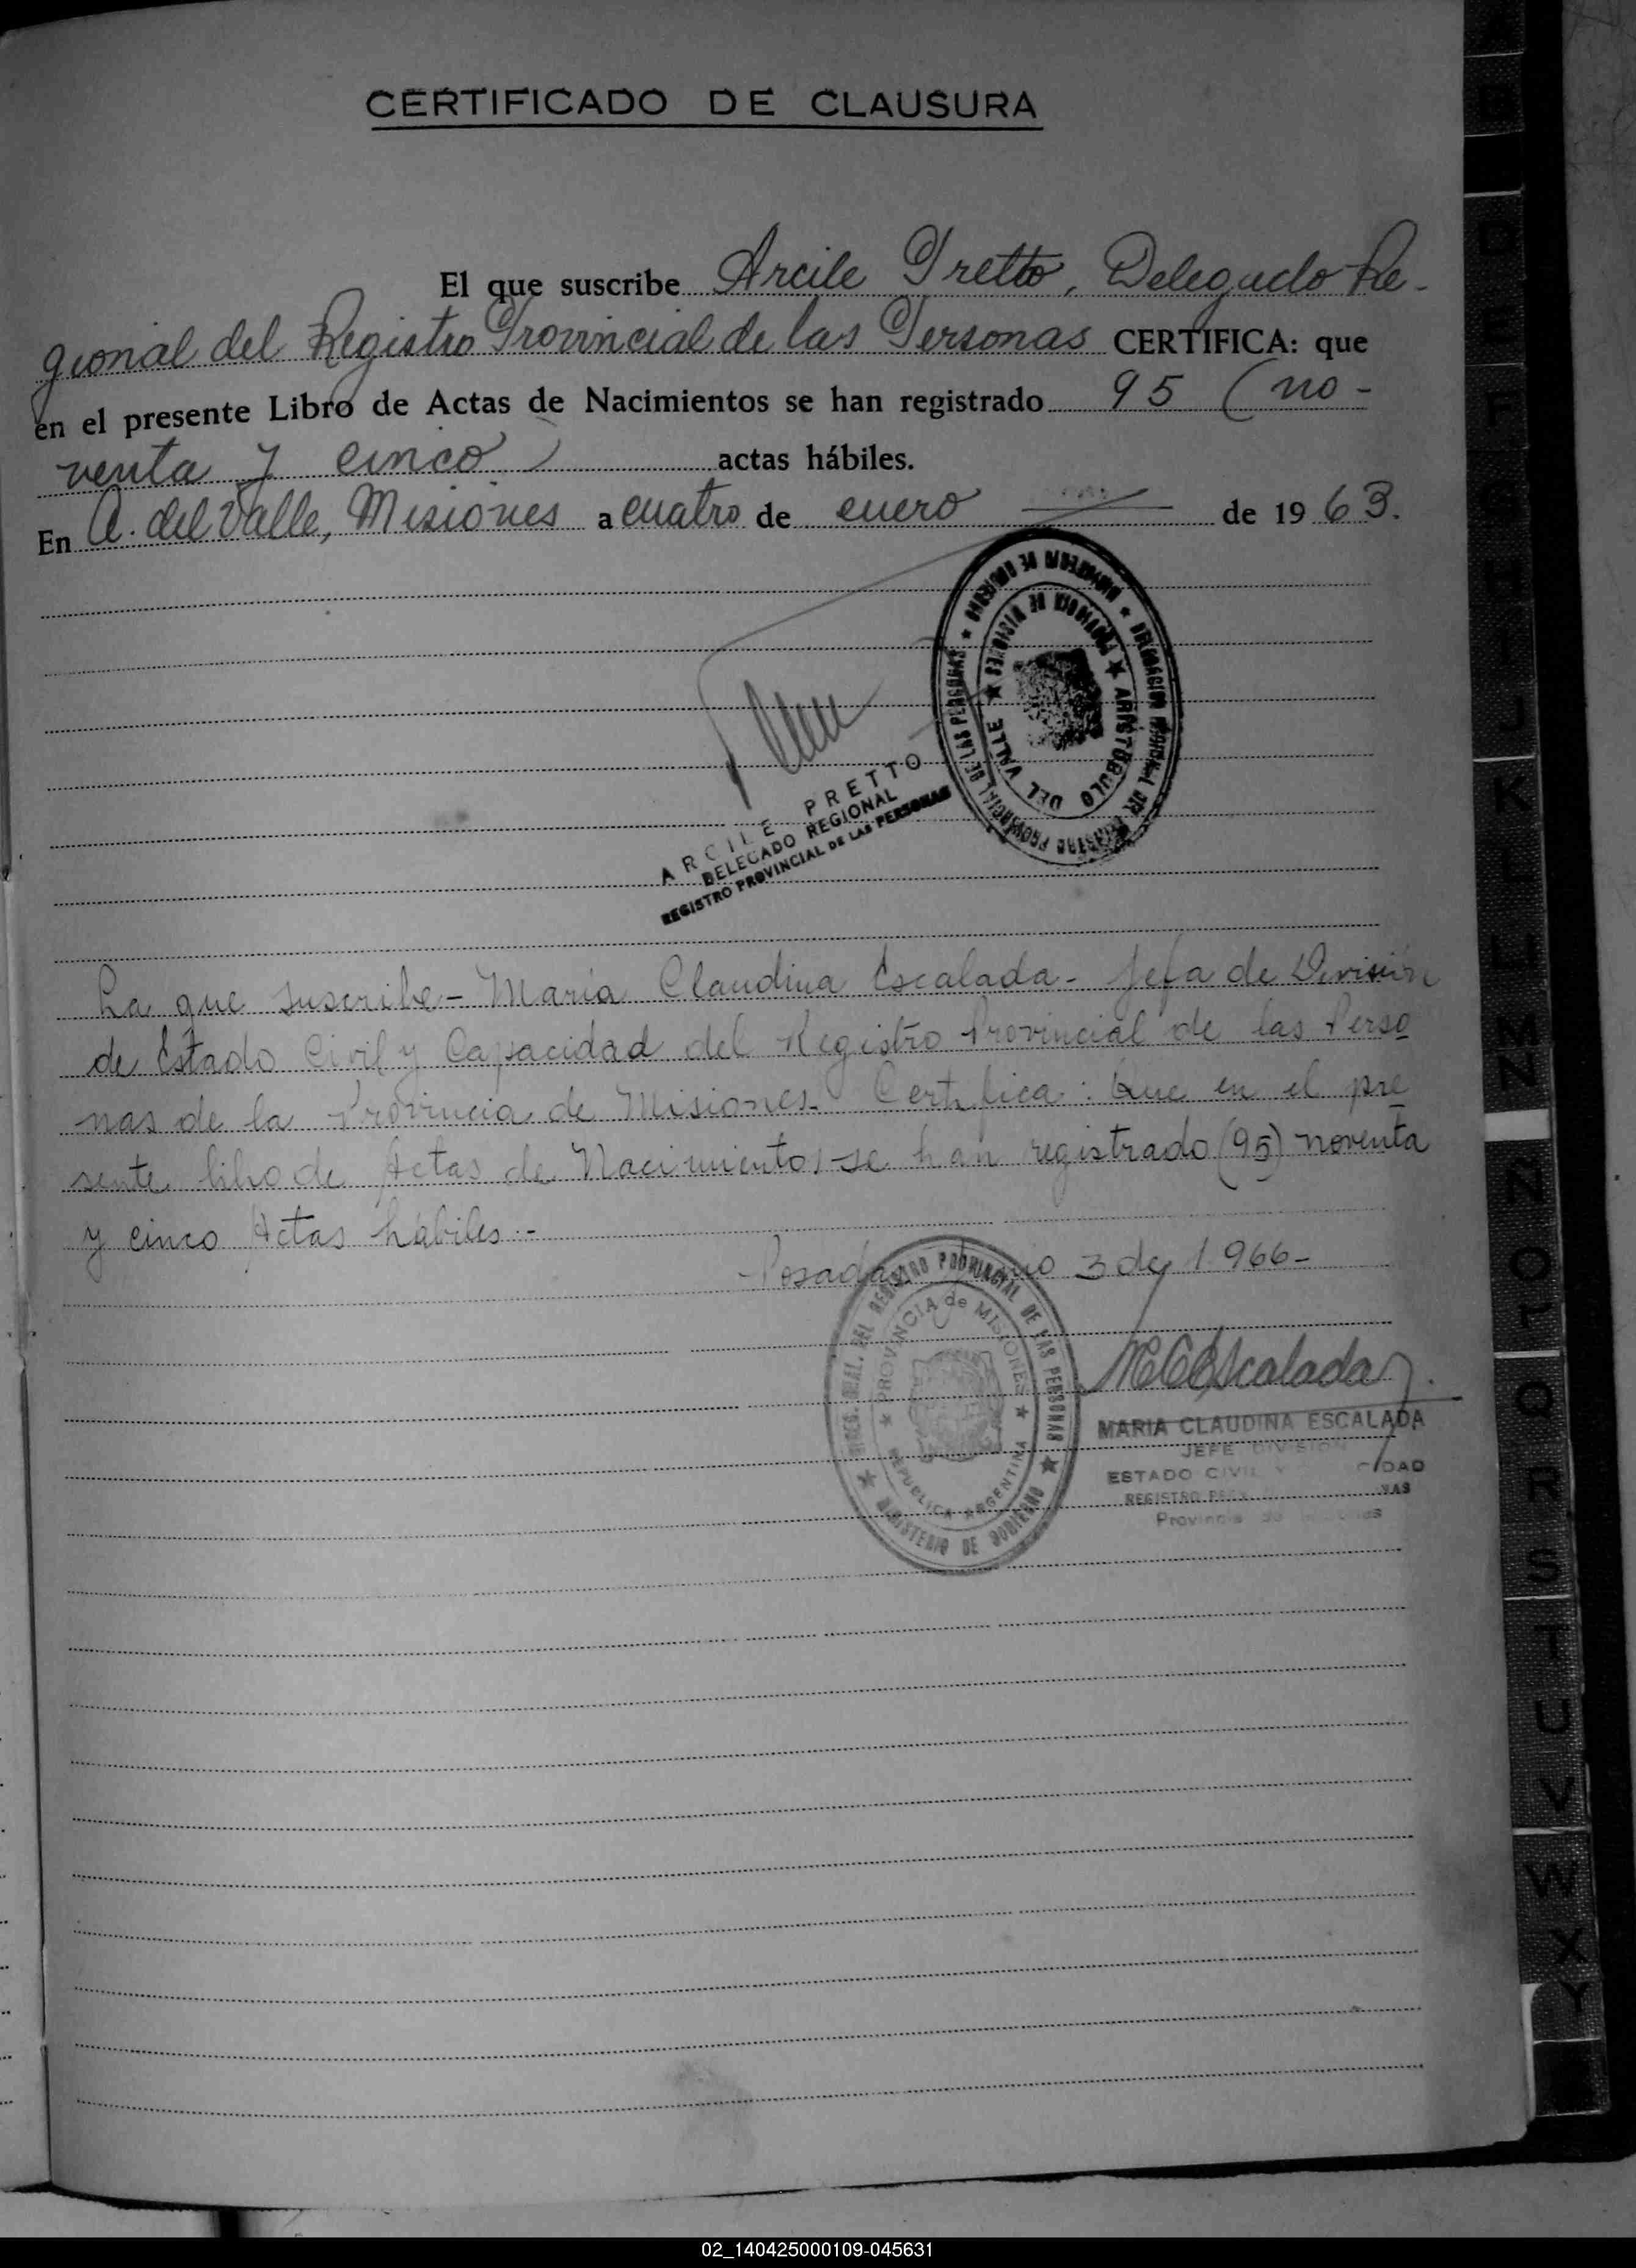 CERTIFICADO DE CLAUSURA
El que suscribe Arcile Pretto, Delegado Re-
gional del Registro Provincial de las Personas CERTIFICA: que
en el presente Libro de Actas de Nacimientos se han registrado 95 (no-
venta y cinco) actas hábiles.
En A. del Valle, Misiones a cuatro de enero de 1963.
MINISTERIO DE GOBIERNO ★ DELEGACION REGIONAL DEL REGISTRO PROVINCIAL DE LAS PERSONAS ★
PROVINCIA DE MISIONES ★ ARISTOBULO DEL VALLE ★
ARCILE PRETTO
DELEGADO REGIONAL
REGISTRO PROVINCIAL DE LAS PERSONAS
La que suscribe - María Claudina Escalada - Jefa de División
de Estado Civil y Capacidad del Registro Provincial de las Perso
nas de la Provincia de Misiones - Certifica: Que en el pre
sente libro de Actas de Nacimientos - se han registrado (95) noventa
y cinco Actas hábiles.-
Posadas 3 de 1.966-
DEL REGISTRO PROVINCIAL DE LAS PERSONAS ★ MINISTERIO DE GOBIERNO ★
PROVINCIA de MISIONES ★ REPUBLICA ARGENTINA ★
MCEscalada
MARIA CLAUDINA ESCALADA
JEFE DIVISION
ESTADO CIVIL Y CIDAD
REGISTRO NAS
Provincia de
A
B
D
E
F
G
H
I
J
K
LL
M
N
Ñ
O
P
Q
R
S
T
U
V
W
X
Y
02_140425000109-045631